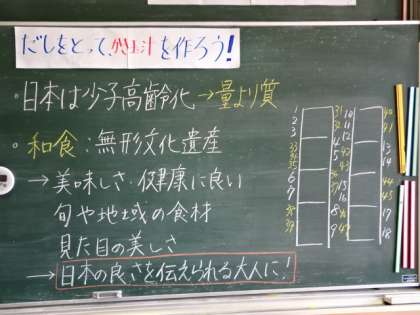 だしをとって、すまし汁を作ろう!
・日本は少子高齢化→量より質
・和食:無形文化遺産
→美味しさ・健康に良い
旬や地域の食材
見た目の美しさ
→日本の良さを伝えられる大人に!
1
2
3
6
7
8
9
10
11
12
13
14
15
16
17
18